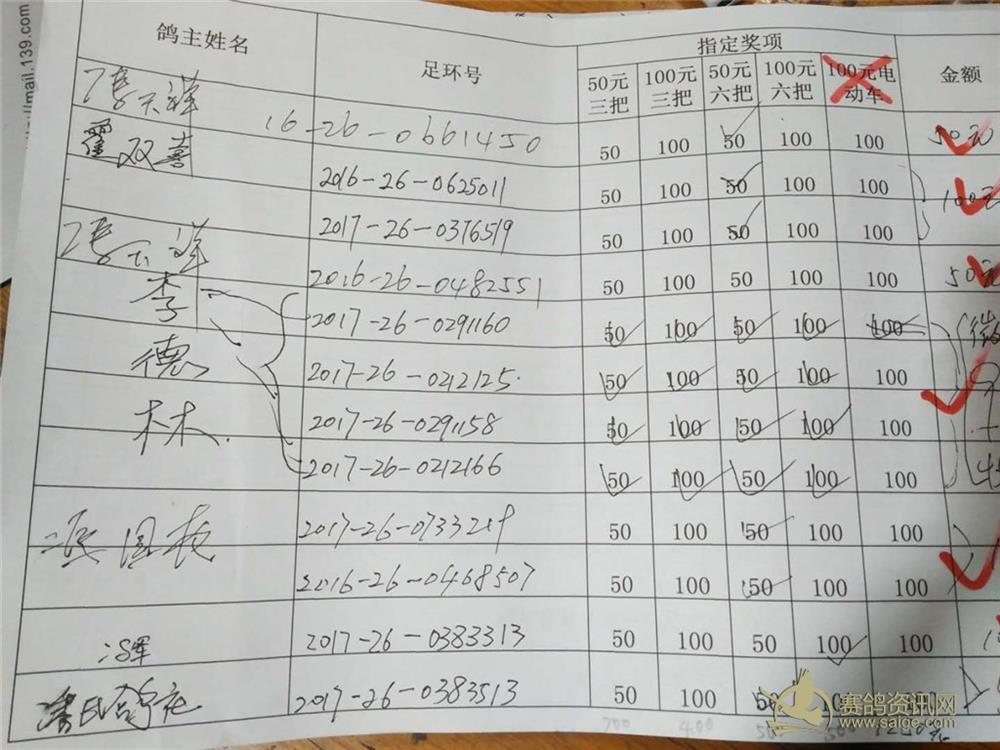 ://mail.139.com
鸽主姓名 足环号 指定奖项 金额
50元三把 100元三把 50元六把 100元六把 100元电动车
16-26-0661450 50 100 50 100 100 50元
霍双喜 2016-26-0625011 50 100 50 100 100 100元
2017-26-0376519 50 100 50 100 100
2016-26-0482551 50 100 50 100 100 50元
李 2017-26-0291160 50 100 50 100 100
德 2017-26-0212125 50 100 50 100 100
林 2017-26-0291158 50 100 50 100 100
2017-26-0212166 50 100 50 100 100
2017-26-0733219 50 100 50 100 100
2016-26-0468507 50 100 50 100 100
2017-26-0383313 50 100 50 100 100
2017-26-0383513 50 100 50 100
赛鸽资讯网
www.saige.com